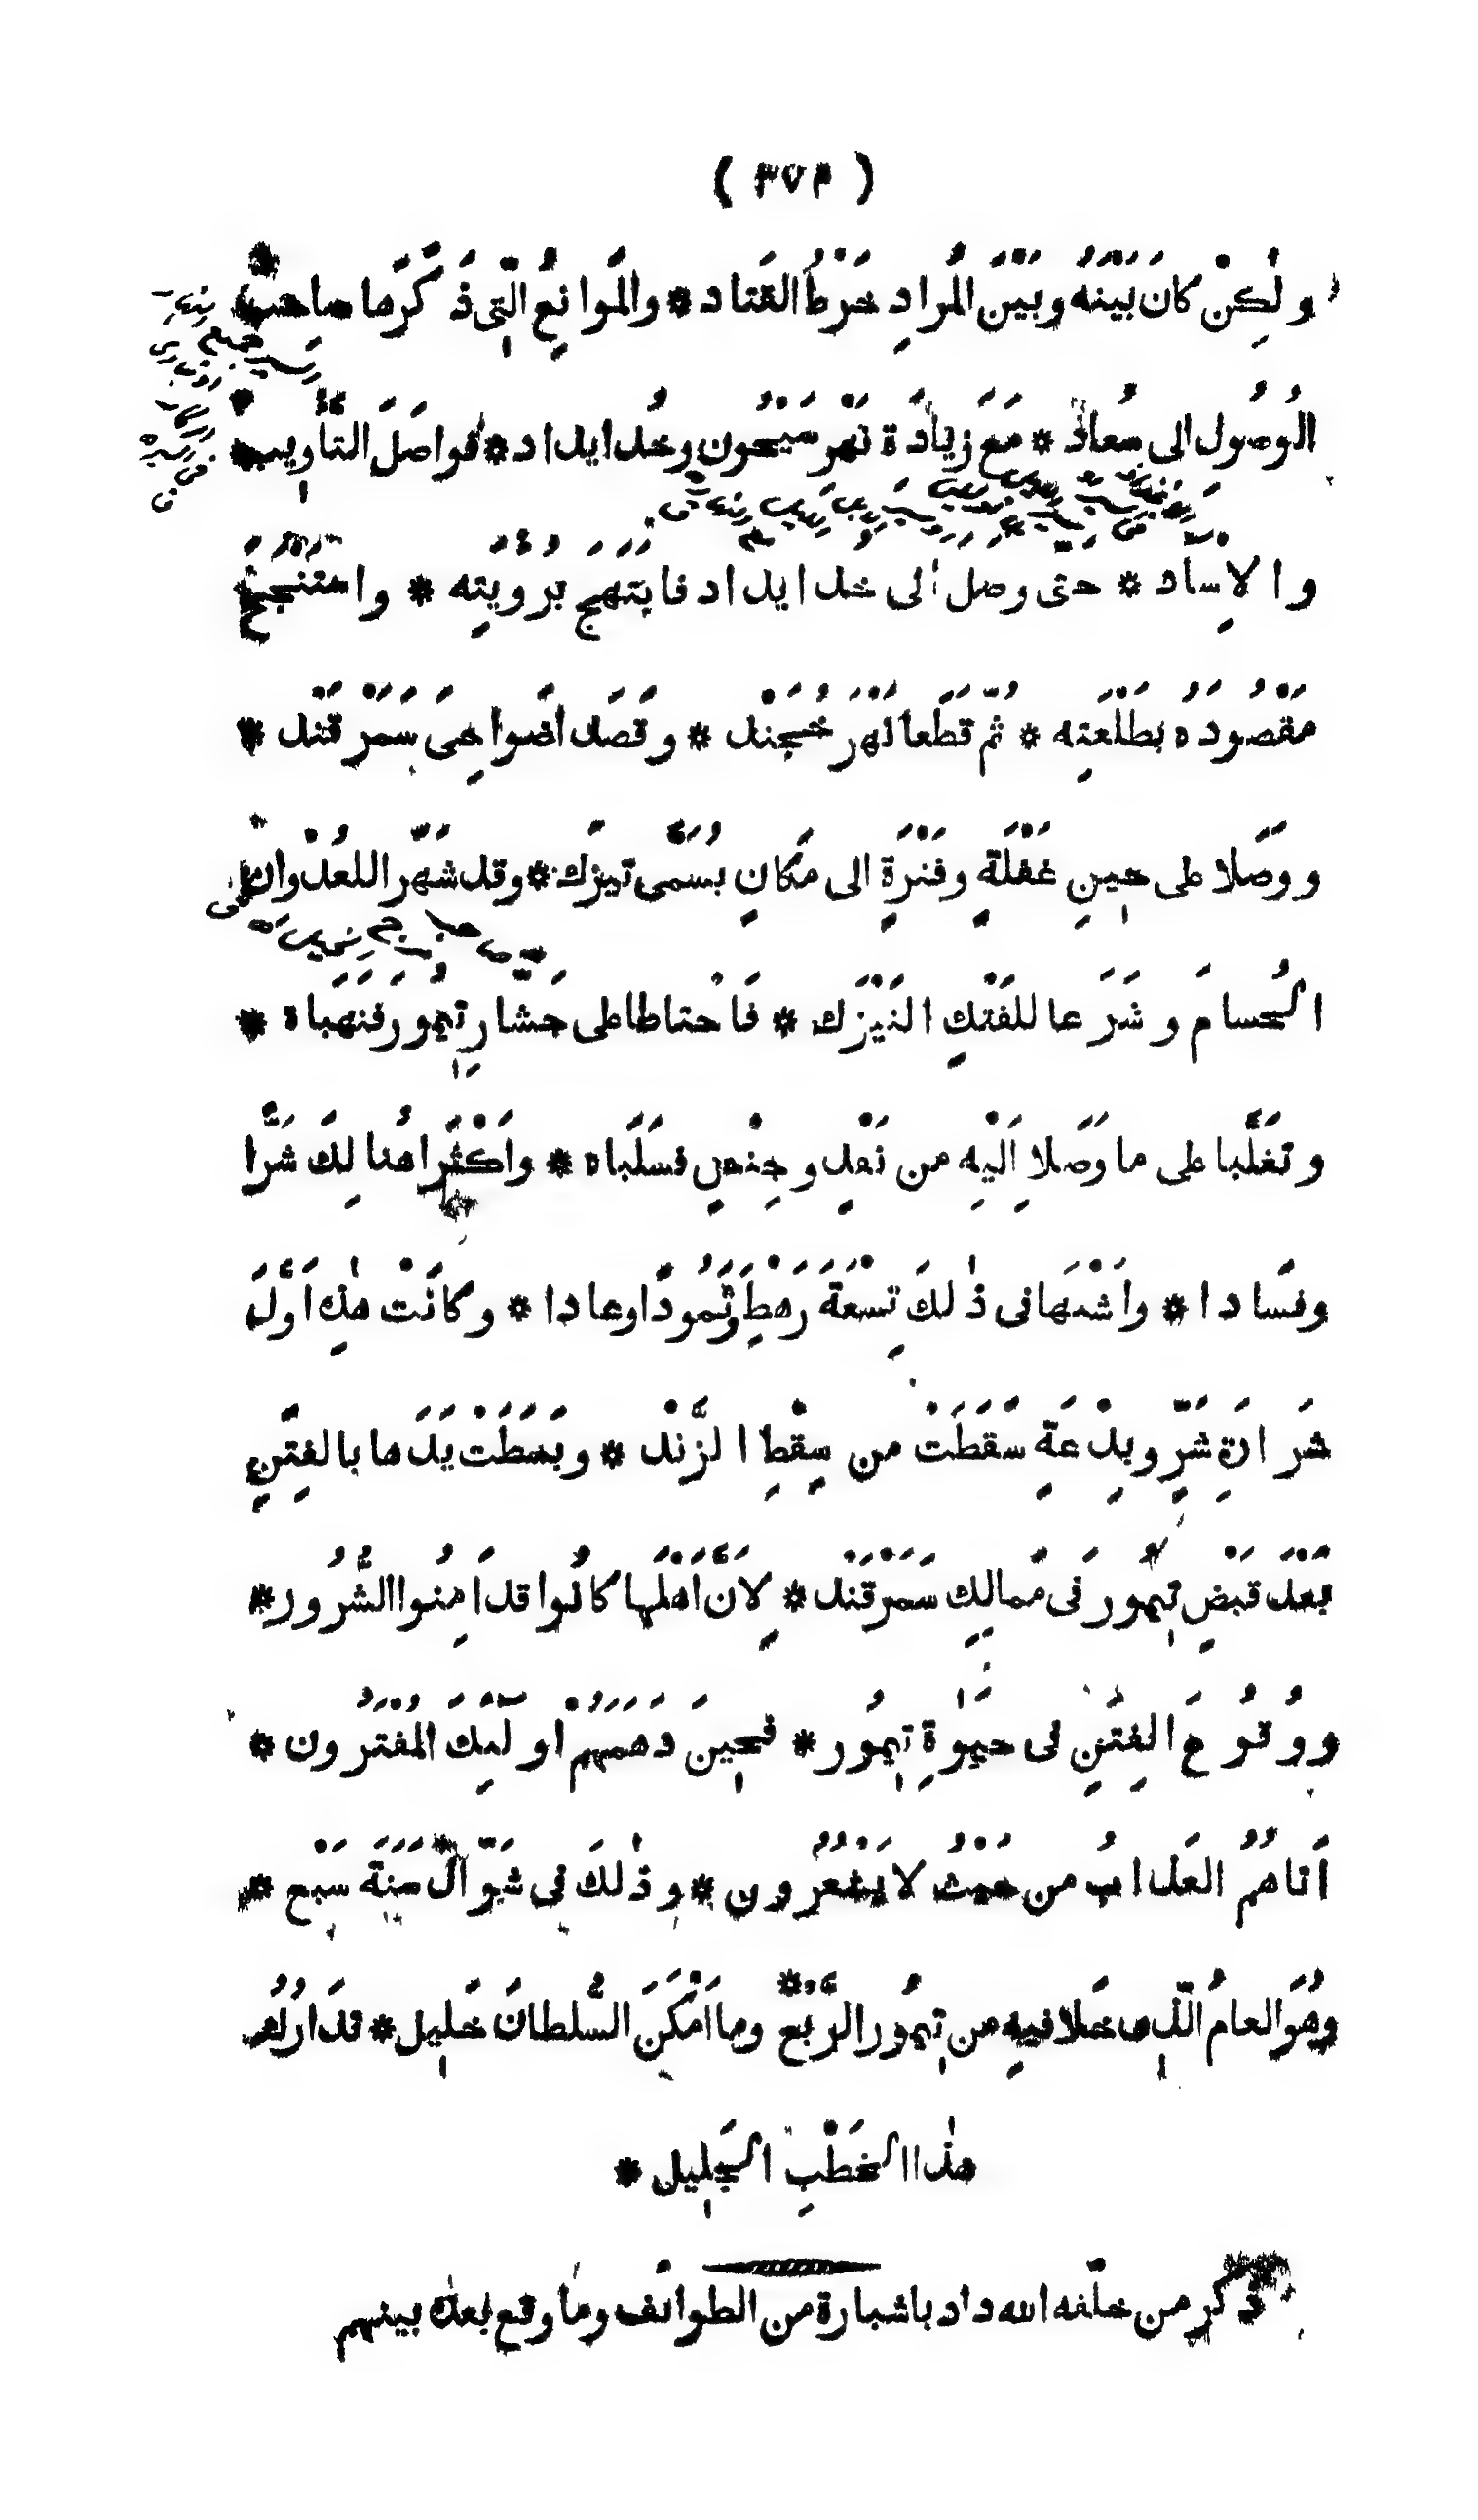 ( ٣٧٢ )
ولٰكِنْ كانَ بَيْنَهُ وبَيْنَ المُرادِ خَرْطُ القَتاد * والمَوانِعُ الَّتِي ذَكَرَها صاحبُ
الوُصُولِ الى سُعادَ * مَعَ زِيادَةِ نَهْرِ سَيْحُون وخُدايداد * فواصَلَ التَّأْوِيبَ
والاِسآد * حتى وصل الى خدايداد فابْتَهَجَ بِرُؤْيَتِه * واسْتَنْجَحَ
مَقْصُودَهُ بطَلْعَتِه * ثُمَّ قَطَعا نَهْرَ خُجَنْد * وقَصَدا ضَواحِىَ سَمَرْقَنْد *
ووَصَلا على حِينِ غَفْلَةٍ وفَتْرَةٍ الى مَكانٍ يُسَمَّى تيزَك * وقد شَهَرا للعُدْوان
الحُسامَ وشَرَعا للفَتْكِ النَّيْزَك * فَاحْتاطا على جَشارِ تِيمُورَ فنَهَباه *
وتَغَلَّبا على ما وَصَلا اِلَيْهِ من نَقْدٍ وجِنْسٍ فسَلَباه * واَكْثَرا هُنالِكَ شَرًّا
وفَسادا * واَشْبَها فى ذٰلكَ تِسْعَةَ رَهْطٍ وثَمُودًا وعادا * وكانَتْ هٰذِه اَوَّلَ
شَرارَةِ شَرٍّ وبِدْعَةٍ سَقَطَتْ من سِقْطِ الزَّنْد * وبَسَطَت يَدَها بالفِتَنِ
بَعْدَ قَبْضِ تِيمُورَ فى مَمالِكِ سَمَرْقَنْد * لِاَنَّ اَهْلَها كانُوا قد اَمِنُوا الشُّرُور *
ووُقُوعَ الفِتَنِ فى حيٰوةِ تِيمُور * فحِينَ دَهَمَهُمْ اولٰئِكَ المُفْتَرُون *
اَتاهُمُ العَذابُ من حَيْثُ لا يَشْعُرُون * وذٰلكَ فِى شَوّال سَنَةَ سَبْعٍ *
وهُوَ العامُ الَّذِى خَلا فيهِ من تِيمُورَ الرَّبْعُ وما اَمْكَنَ السُّلطانَ خَلِيل * تَدارُكُ
هٰذا الخَطْبِ الجَلِيل *
ذكر من خلّفه الله داد باشبارة من الطوائف وما وقع بعدَه بينهم